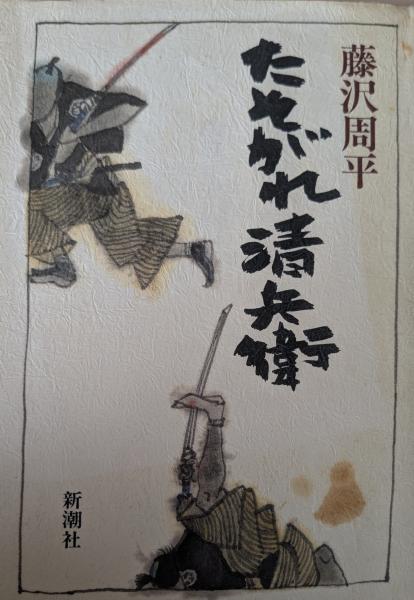 藤沢周平
たそがれ清兵衛
新潮社